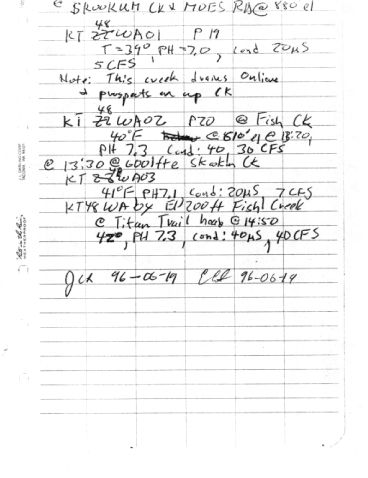 @ SKOOKUM CK & MOES Rd @ 880 el
48
KT 22WA01 P 19
T = 39° PH = 7.0, Cond 20μS
5 CFS
Note: This creek drains Online
+ prospects on up CK
48
KT 22WA02 P20 @ Fish CK
40°F @ 810' el @ 13:20,
PH 7.3 Cond: 40, 30 CFS
@ 13:30 @ 600 ft @ Skookum Ck
KT WA03
41°F PH 7.1, Cond: 20μS 7 CFS
KT48 WA 04 El 200 ft Fish Creek
@ Titan Trail head @ 14:50
42°, PH 7.3, Cond: 40μS, 40 CFS
96-06-19 96-06-19